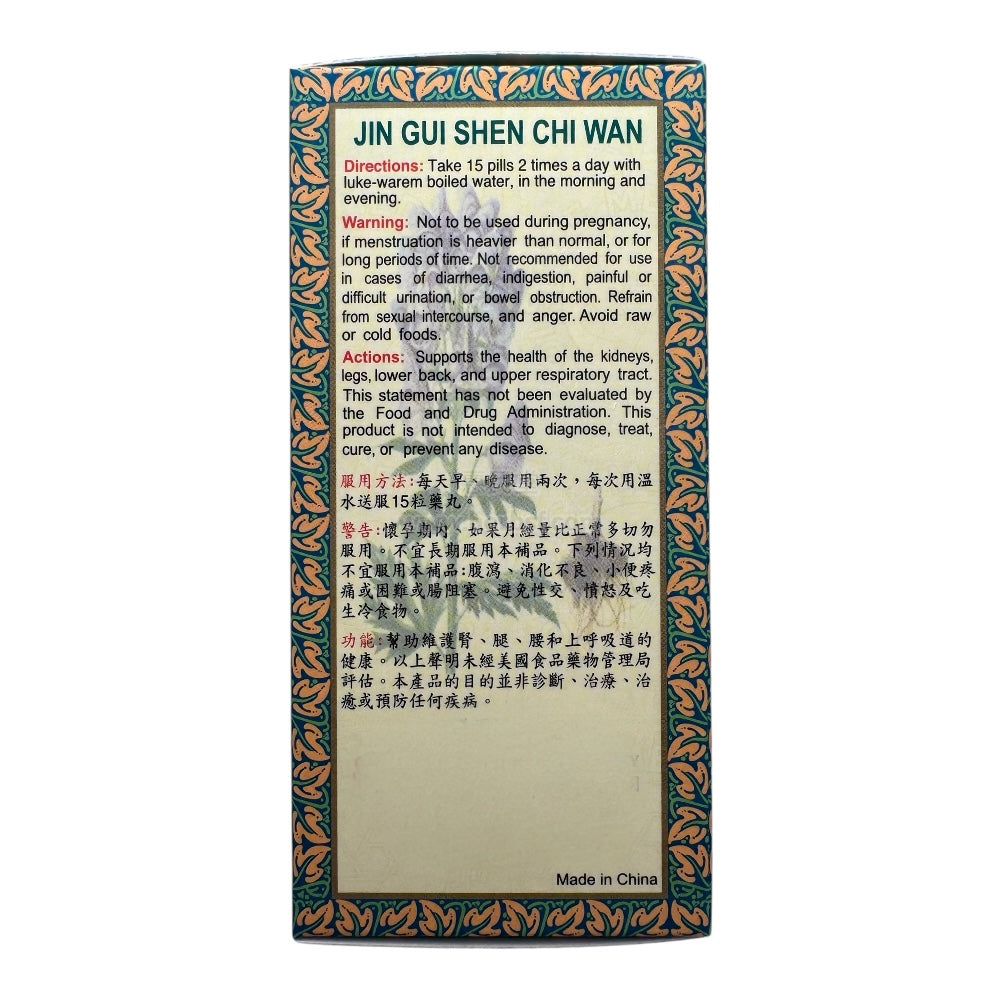 JIN GUI SHEN CHI WAN
Directions: Take 15 pills 2 times a day with
luke-warem boiled water, in the morning and
evening.
Warning: Not to be used during pregnancy,
if menstruation is heavier than normal, or for
long periods of time. Not recommended for use
in cases of diarrhea, indigestion, painful or
difficult urination, or bowel obstruction. Refrain
from sexual intercourse, and anger. Avoid raw
or cold foods.
Actions: Supports the health of the kidneys,
legs, lower back, and upper respiratory tract.
This statement has not been evaluated by
the Food and Drug Administration. This
product is not intended to diagnose, treat,
cure, or prevent any disease.
服用方法:每天早、晚服用兩次，每次用溫
水送服15粒藥丸。
警告:懷孕期內、如果月經量比正常多切勿
服用。不宜長期服用本補品。下列情況均
不宜服用本補品:腹瀉、消化不良、小便疼
痛或困難或腸阻塞。避免性交、憤怒及吃
生冷食物。
功能:幫助維護腎、腿、腰和上呼吸道的
健康。以上聲明未經美國食品藥物管理局
評估。本產品的目的並非診斷、治療、治
癒或預防任何疾病。
Made in China